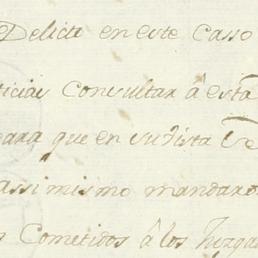 Delicti en este Casso
ticias Consultar â esta
para que en su vista Se
assimismo mandaro
s Cometidos â los Juzga